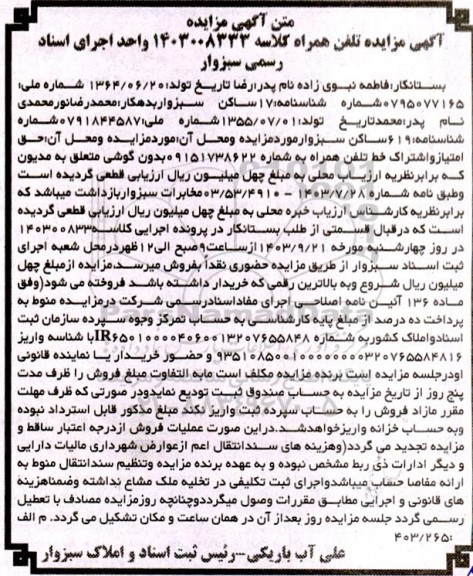 متن آگهی مزایده
آگهی مزایده تلفن همراه کلاسه ۱۴۰۳۰۰۸۳۳۳ واحد اجرای اسناد
رسمی سبزوار
بستانکار:فاطمه نبوی زاده نام پدر:رضا تاریخ تولد:۱۳۶۴/۰۶/۲۰ شماره ملی:
۰۷۹۵۰۷۷۱۶۵شماره شناسنامه:۱۷ساکن سبزواربدهکار:محمدرضانورمحمدی
نام پدر:محمدتاریخ تولد:۱۳۵۵/۰۷/۰۱شماره ملی:۰۷۹۱۸۴۴۵۸۷شماره
شناسنامه:۶۱۹ساکن سبزوارموردمزایده ومحل آن:موردمزایده ومحل آن:حق
امتیازواشتراک خط تلفن همراه به شماره ۰۹۱۵۱۷۳۸۶۴۲بدون گوشی متعلق به مدیون
که برابرنظریه ارزیاب محلی به مبلغ چهل میلیون ریال ارزیابی قطعی گردیده است
وطبق نامه شماره ۱۴۰۳/۰۴/۲۸ - ۰۳/۵۳/۴۹۱۰مخابرات سبزواربازداشت میباشد که
برابرنظریه کارشناس ارزیاب خبره محلی به مبلغ چهل میلیون ریال ارزیابی قطعی گردیده
است که درقبال قسمتی از طلب بستانکار در پرونده اجرایی کلاسه۱۴۰۳۰۰۸۳۳
در روز چهارشنبه مورخه ۱۴۰۳/۹/۲۱ ازساعت۹صبح الی۱۲ظهردرمحل شعبه اجرای
ثبت اسناد سبزوار از طریق مزایده حضوری نقداً بفروش میرسد.مزایده ازمبلغ چهل
میلیون ریال شروع وبه بالاترین رقمی که خریدار داشته باشد فروخته می شود(وفق
ماده ۱۳۶ آئین نامه اصلاحی اجرای مفاداسنادرسمی شرکت درمزایده منوط به
پرداخت ده درصد از مبلغ پایه کارشناسی به حساب تمرکز وجوه سپرده سازمان ثبت
اسنادواملاک کشوربه شماره IR۶۵۰۱۰۰۰۰۴۰۶۰۰۱۳۲۰۷۶۵۵۸۴۸با شناسه واریز
۹۳۵۱۰۸۵۰۰۱۰۰۰۰۰۰۰۳۲۰۷۶۵۵۸۴۸۱۶ و حضور خریدار یا نماینده قانونی
اودرجلسه مزایده است برنده مزایده مکلف است مابه التفاوت مبلغ فروش را ظرف مدت
پنج روز از تاریخ مزایده به حساب صندوق ثبت تودیع نمایدودر صورتی که ظرف مهلت
مقرر مازاد فروش را به حساب سپرده ثبت واریز نکند مبلغ مذکور قابل استرداد نبوده
وبه حساب خزانه واریزخواهدشد.دراین صورت عملیات فروش ازدرجه اعتبار ساقط و
مزایده تجدید می گردد(وهزینه های سندانتقال اعم ازعوارض شهرداری مالیات دارایی
و دیگر ادارات ذی ربط مشخص نبوده و به عهده برنده مزایده وتنظیم سندانتقال منوط به
ارائه مفاصا حساب میباشدواجرای ثبت تکلیفی در تخلیه ملک مشاع نداشته وضمناهزینه
های قانونی و اجرایی مطابق مقررات وصول میگرددوچنانچه روزمزایده مصادف با تعطیل
رسمی گردد جلسه مزایده روز بعداز آن در همان ساعت و مکان تشکیل می گردد. م الف
:۴۰۳/۲۶۵
علی آب باریکی-رئیس ثبت اسناد و املاک سبزوار